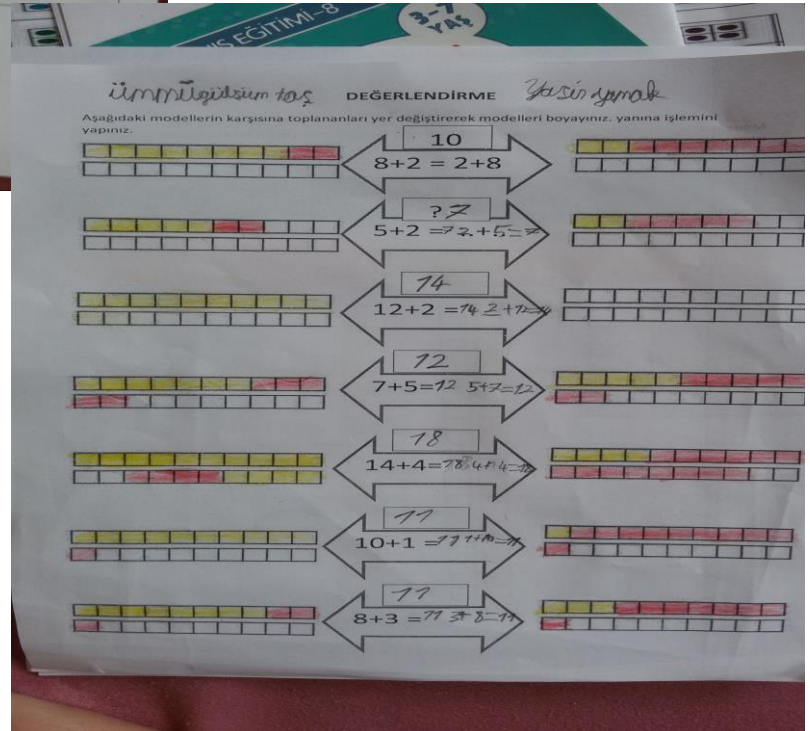 IŞ EĞİTİMİ-8
3-7
YAŞ
ümmügülsüm taş DEĞERLENDİRME Yasin yamak
Aşağıdaki modellerin karşısına toplananları yer değiştirerek modelleri boyayınız. yanına işlemini
yapınız.
10
8+2 = 2+8
? 7
5+2 =7 2+5=7
14
12+2 =14 2+12=14
12
7+5=12 5+7=12
18
14+4=18 4+14=18
11
10+1 =11 1+10=11
11
8+3 =11 3+8=11